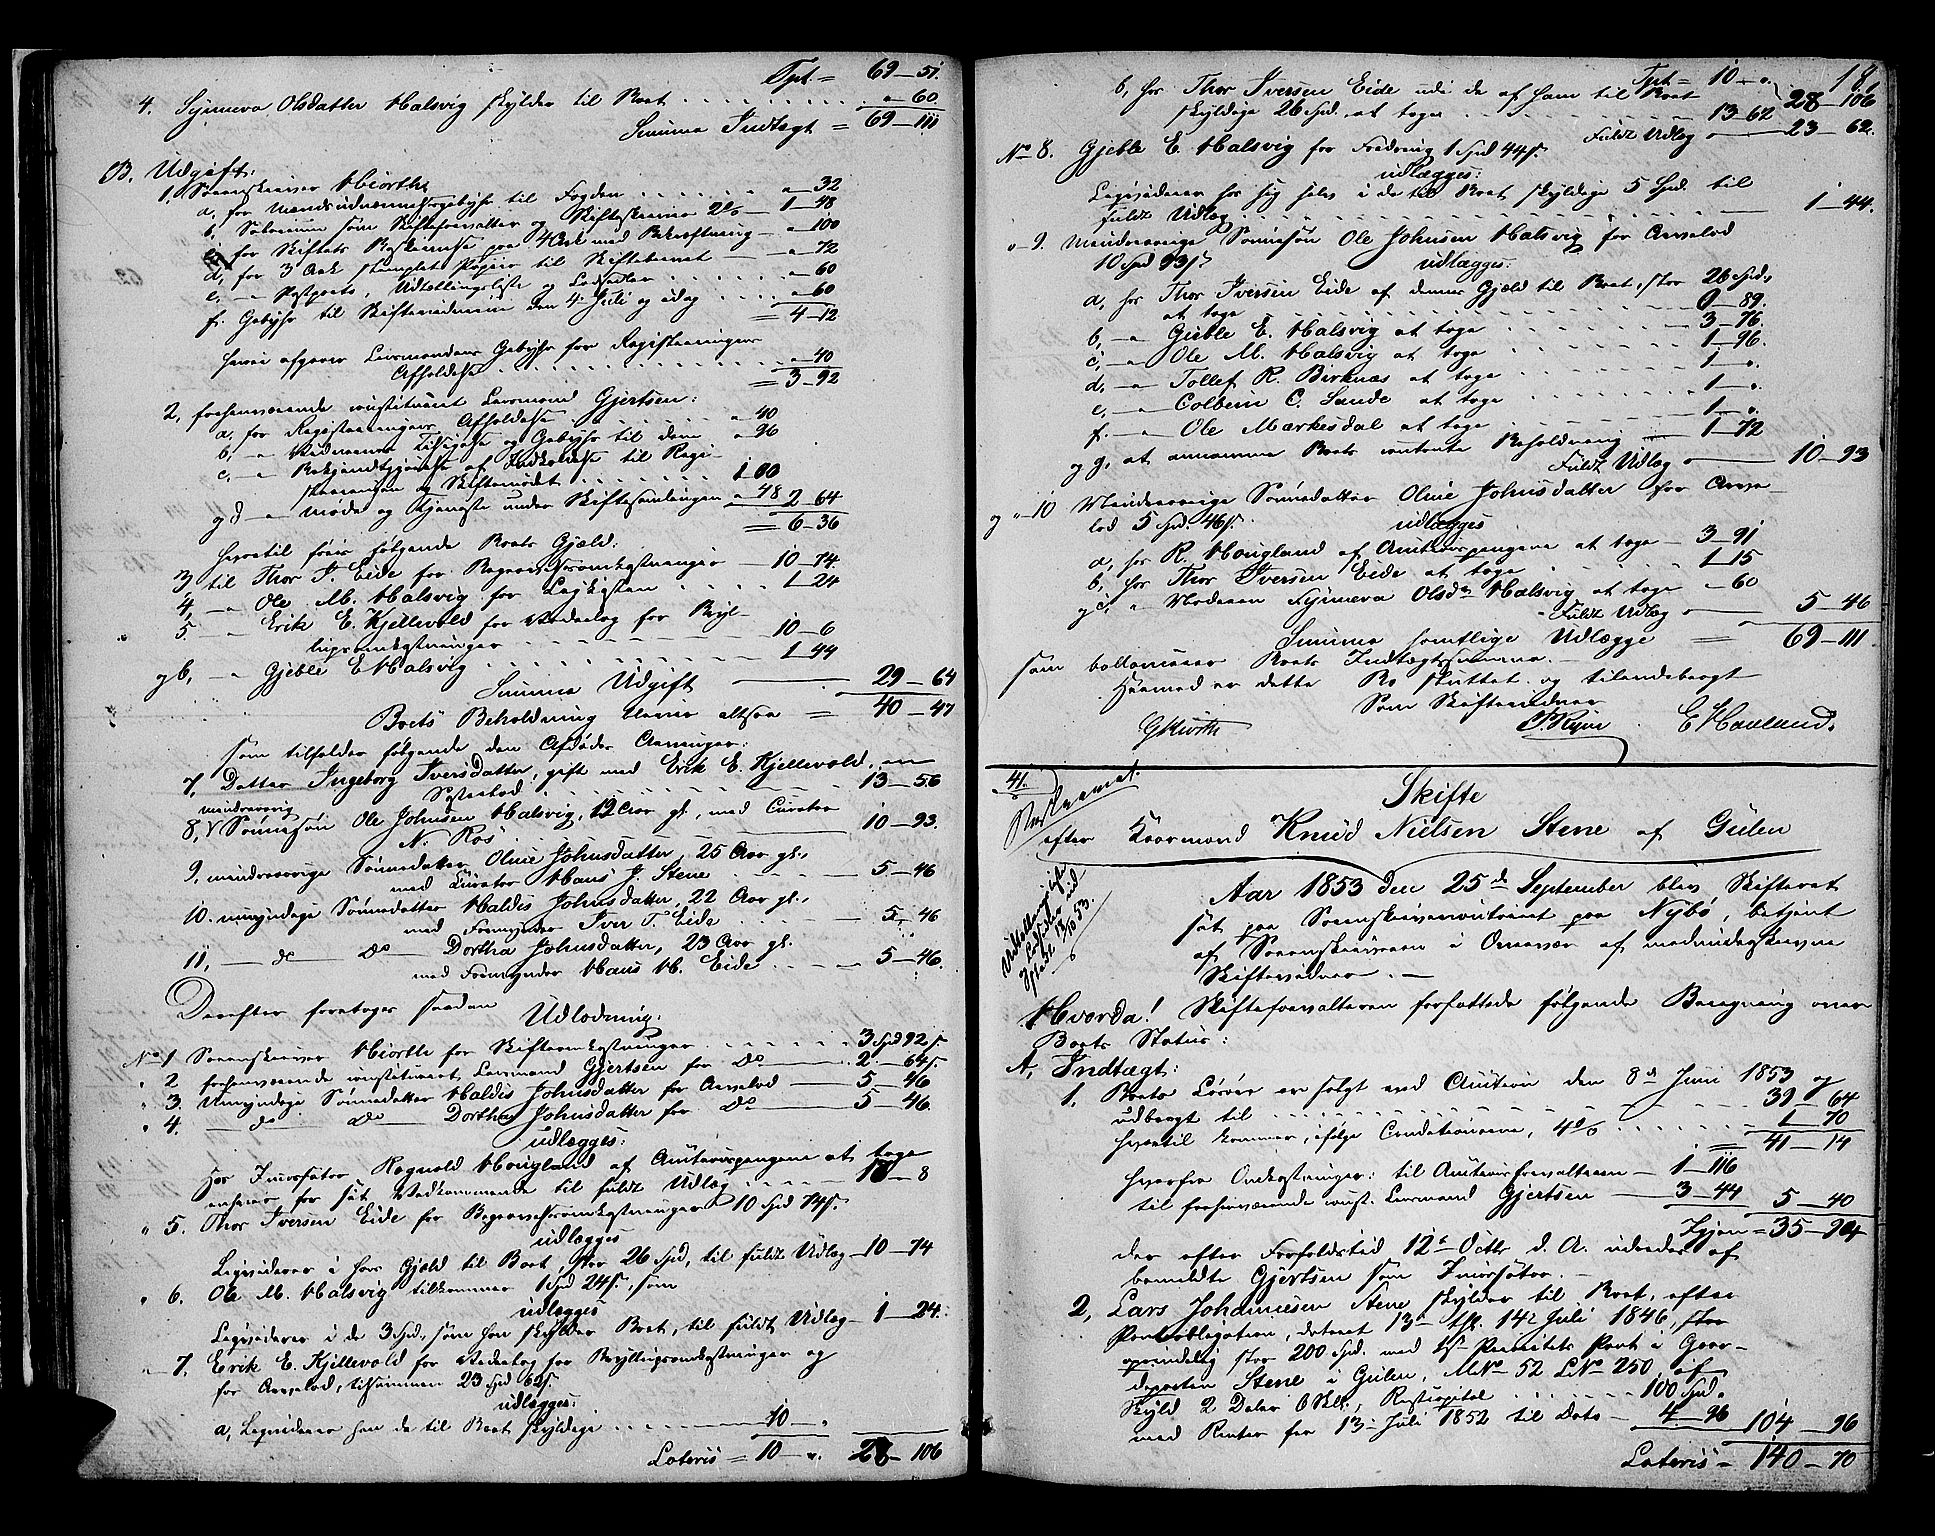 Tpt. = 69 – 51.
4. Synneva Olsdatter Halsvig skylder til Boet . . . . . . . „ 60
Summa Indtægt = 69 – 111
B. Udgift:
1. Sorenskriver Hiorth:
a, for Mændsudnævnelsesgebyhr til Fogden . . . . „ 32
b, Salarium som Skifteforvalter og Skifteskriver 2% – 1 – 48
c, for Skiftets Beskrivelse paa 4 Ark med Bekræftning – „ 100
d, for 3 Ark stemplet Papiir til Skiftebrevet – „ 72
e, – Postporto, Udlodningsliste og Lodsedler . . „ 60
f. Gebyhr til Skiftevidnerne den 4 Juli og idag . . . „ 60
= 4 – 12
herai afgaar Lensmandens Gebyhr for Registreringens
Afholdelse . . . . . . „ 40
= 3 – 92
2, forhenværende constitueret Lensmand Gjertsen:
a, for Registreringens Afholdelse „ 40
b, – Vidnernes Tilsigelse og Gebyhr til dem „ 96
c, – Bekjendtgjørelse af Indkaldelse til Regi-
streringen og Skiftemødet . . . . . 1 00
og d – Møde og Tjeneste under Skiftesamlingen „ 48 2 – 64
= 6 – 36
hertil føies følgende Boets Gjæld:
3, til Thor I. Eide for Begravelsesomkostninger – 10 – 74
4, – „ Ole M. Halsvig for Ligkisten . . . 1 – 24
5, – „ Erik E. Kjellevold for Vederlag for Bryl-
lupsomkostninger . . . . 10 – 6
og 6, – „ Gjeble E Halsvig . . . . . . 1 – 44
Summa Udgift 29 – 64
Boets Beholdning bliver altsaa = 40 – 47
som tilfalder følgende den Afdødes Arvinger:
7, Datter Ingeborg Iversdatter, gift med Erik E. Kjellevold, en
Søsterlod . . . . . 13 – 56
mindreaarig
8, Sønnesøn Ole Johnsen Halsvig, 19 Aar gl., med Curator
N. Røs . . . 10 – 93.
9, mindreaarige Sønnedatter Oline Johnsdatter, 25 Aar gl.,
med Curator Hans J. Stene . . . . 5 – 46
10. umyndige Sønnedatter Haldis Johnsdatter, 22 Aar gl.,
med Formynder Iver T. Eide . . . . 5 – 46
11, – do – do – Dortha Johnsdatter, 23 Aar gl.
med Formynder Hans H. Eide . . . . 5 – 46.
Derefter foretoges saadan
Udlodning:
No 1 Sorenskriver Hiorth for Skifteomkostninger . . . . . . 3 Spd 92 s.
„ 2 forhenværende constitueret Lensmand Gjertsen for do . . 2 – 64 s.
„ 3. Umyndige Sønnedatter Haldis Johnsdatter for Arvelod – 5 – 46
„ 4. – do – do – Dortha Johnsdatter for do – 5 – 46.
udlægges:
hos Incassator Ragnald Hougland af Auctionspengene at tage
enhver for sit Vedkommende til fuldt Udlæg . . . . 18 – 8
„ 5. Thor Iversen Eide for Begravelsesomkostninger 10 Spd 74 s.
udlægges
Liqviderer i hans Gjæld til Boet, stor 26 Spd, til fuldt Udlæg – 10 – 74
„ 6. Ole M. Halsvig tilkommer 1 Spd 24 s., som
udlægges
Liqviderer i de 3 Spd, som han skylder Boet, til fuldt Udlæg – 1 – 24.
„ 7. Erik E. Kjellevold for Vederlag for Bryllupsomkostninger og
for Arvelod, tilsammen 23 Spd 62 s.
udlægges:
a, Liqviderer han de til Boet skyldige . . . . . . 10 – „
Lateris = 10 – „. 28 – 106
Tpt = 10 – „. 28 – 106
b, hos Thor Iversen Eide udi de af ham til Boet
skyldige 26 Spd. at tage . . . . . . 13 62
Fuldt Udlæg – 23 – 62.
No 8. Gjeble E. Halsvig for Fordring 1 Spd 44 s.
udlægges:
Liqviderer hos sig selv i de til Boet skyldige 5 Spd. til
fuldt Udlæg . . . . . . . . . . 1 – 44.
„ 9. Mindreaarige Sønnesøn Ole Johnsen Halsvig for Arvelod
10 Spd 93 s.
udlægges:
a, hos Thor Iversen Eide af dennes Gjæld til Boet, stor 26 Spd,
at tage . . . . . . 0 – 89.
b, – „ Gjeble E. Halsvig at tage . . . . 3 – 76.
c, – „ Ole M. Halsvig at tage . . . . 1 – 96.
d, – „ Tollef R. Birknæs at tage . . . 1 – „.
e, – „ Colbein C. Sande at tage . . . 1 – „.
f. – „ Ole Markesdal at tage . . . 1 – „.
og g, at annamme Boets contante Beholdning – 1 – 72
Fuldt Udlæg – 10 – 93
og „ 10 Mindreaarige Sønnedatter Oline Johnsdatter for Arve-
lod 5 Spd. 46 s.
udlægges
a, hos R. Hougland af Auctionspengene at tage – 3 91
b, hos Thor Iversen Eide at tage . . . . 1 15
og c, „ Moderen Synneva Olsdtr Halsvig at tage – 60
Fuldt Udlæg – 5 – 46
Summa samtlige Udlægge = 69 – 111
som ballancerer Boets Indtægtssumma. –
Hermed er dette Bo sluttet og tilendebragt
Som Skiftevidner
GHiorth E Havland.
41. Skifte
efter Kaarmand Knud Nielsen Stene af Gulen
Udlodningsliste
Lodsedler ud-
stedt 13/10 53.
Aar 1853 den 25de September blev Skifteret
sat paa Sorenskrivercontoiret paa Nybø, betjent
af Sorenskriveren i Overvær af medundskrevne
Skiftevidner. –
Hvorda! Skifteforvalteren forfattede følgende Beregning over
Boets Status:
A. Indtægt:
1. Boets Løsøre er solgt ved Auction den 8de Juni 1853 og
udbragt til . . . . . . . . . . 39 – 64
hvortil kommer, ifølge Conditionerne, 4% . . . . . 1 – 70
= 41 – 14
herfra Omkostninger: til Auctionsforvalteren – 1 – 116
til forhenværende const. Lensmand Gjertsen – 3 – 44 5 – 40
Igjen = 35 – 94
der efter Forfaldstid 12te Octbr d. A. udredes af
bemeldte Gjertsen som Incassator. –
2, Lars Johannesen Stene skylder til Boet, efter
Panteobligation, dateret 13de tgl. 14de Juli 1846, stor
oprindelig stor 200 Spd. med 1ste Prioritets Pant i Gaar-
departen Stene i Gulen, MNo 52 LNo 250, af
Skyld 2 Daler 0 Skl., Restcapital . . . . . 100 Spd.
med Renter fra 13de Juli 1852 til Dato – 4 – 96 104 – 96
Lateris – 140 – 70